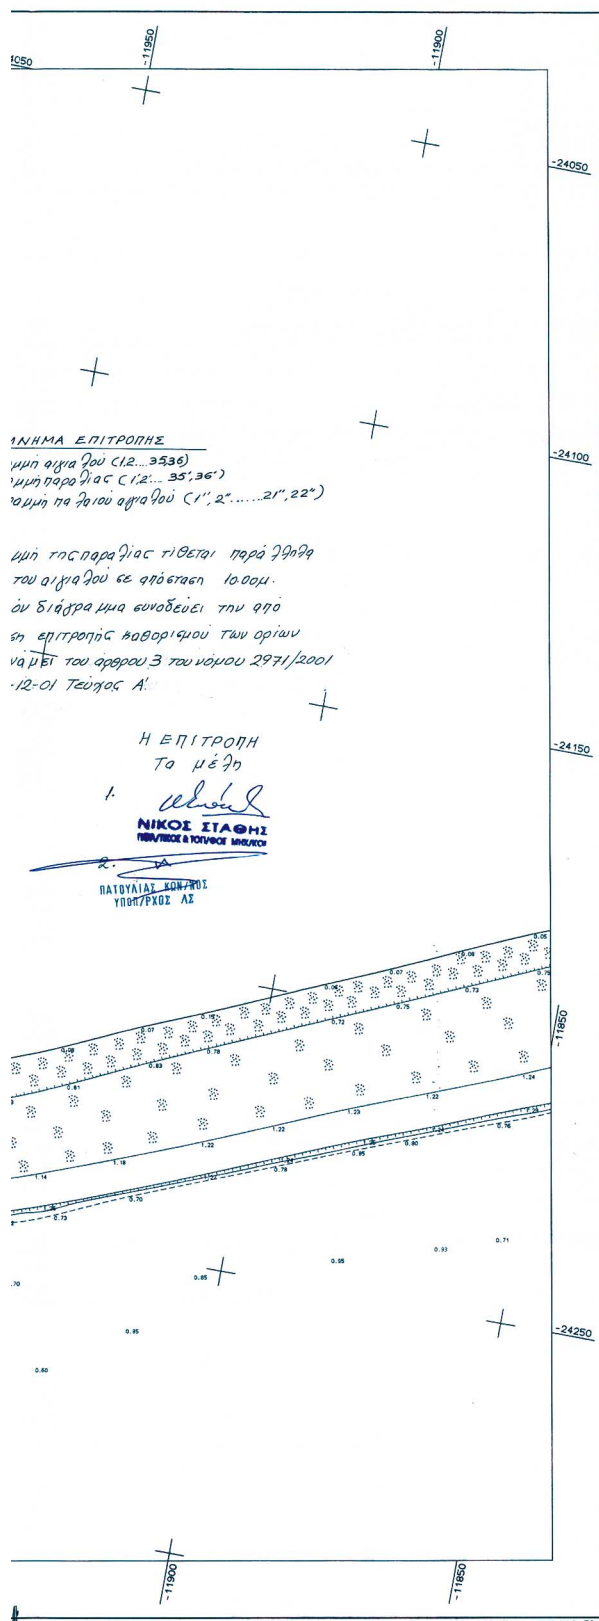 -11950
-11900
4050
-24050
ΜΝΗΜΑ ΕΠΙΤΡΟΠΗΣ
αμμή αιγιαλού (1,2....35,36)
αμμή παραλίας (1',2'.... 35',36')
αμμή παλαιού αιγιαλού (1'',2''......21'',22'')
-24100
μμή της παραλίας τίθεται παράλληλα
του αιγιαλού σε απόσταση 10.00μ.
όν διάγραμμα συνοδεύει την από
ση επιτροπής καθορισμού των ορίων
να με του άρθρου 3 του νόμου 2971/2001
-12-01 Τεύχος Α'
-24150
Η ΕΠΙΤΡΟΠΗ
Τα μέλη
1.
ΝΙΚΟΣ ΣΤΑΘΗΣ
2.
ΠΑΤΟΥΛΙΑΣ ΚΩΝ/ΝΟΣ
ΥΠΟΠ/ΡΧΟΣ ΛΣ
0.05
0.08
0.07
0.06
0.15
0.07
0.08
0.75
0.73
0.75
0.72
0.78
0.83
0.81
-11850
1.24
1.22
1.23
1.22
1.22
1.18
1.14
0.76
0.80
0.85
0.78
0.70
0.73
0.71
0.93
0.95
0.85
.70
0.85
0.60
-24250
-11900
-11850